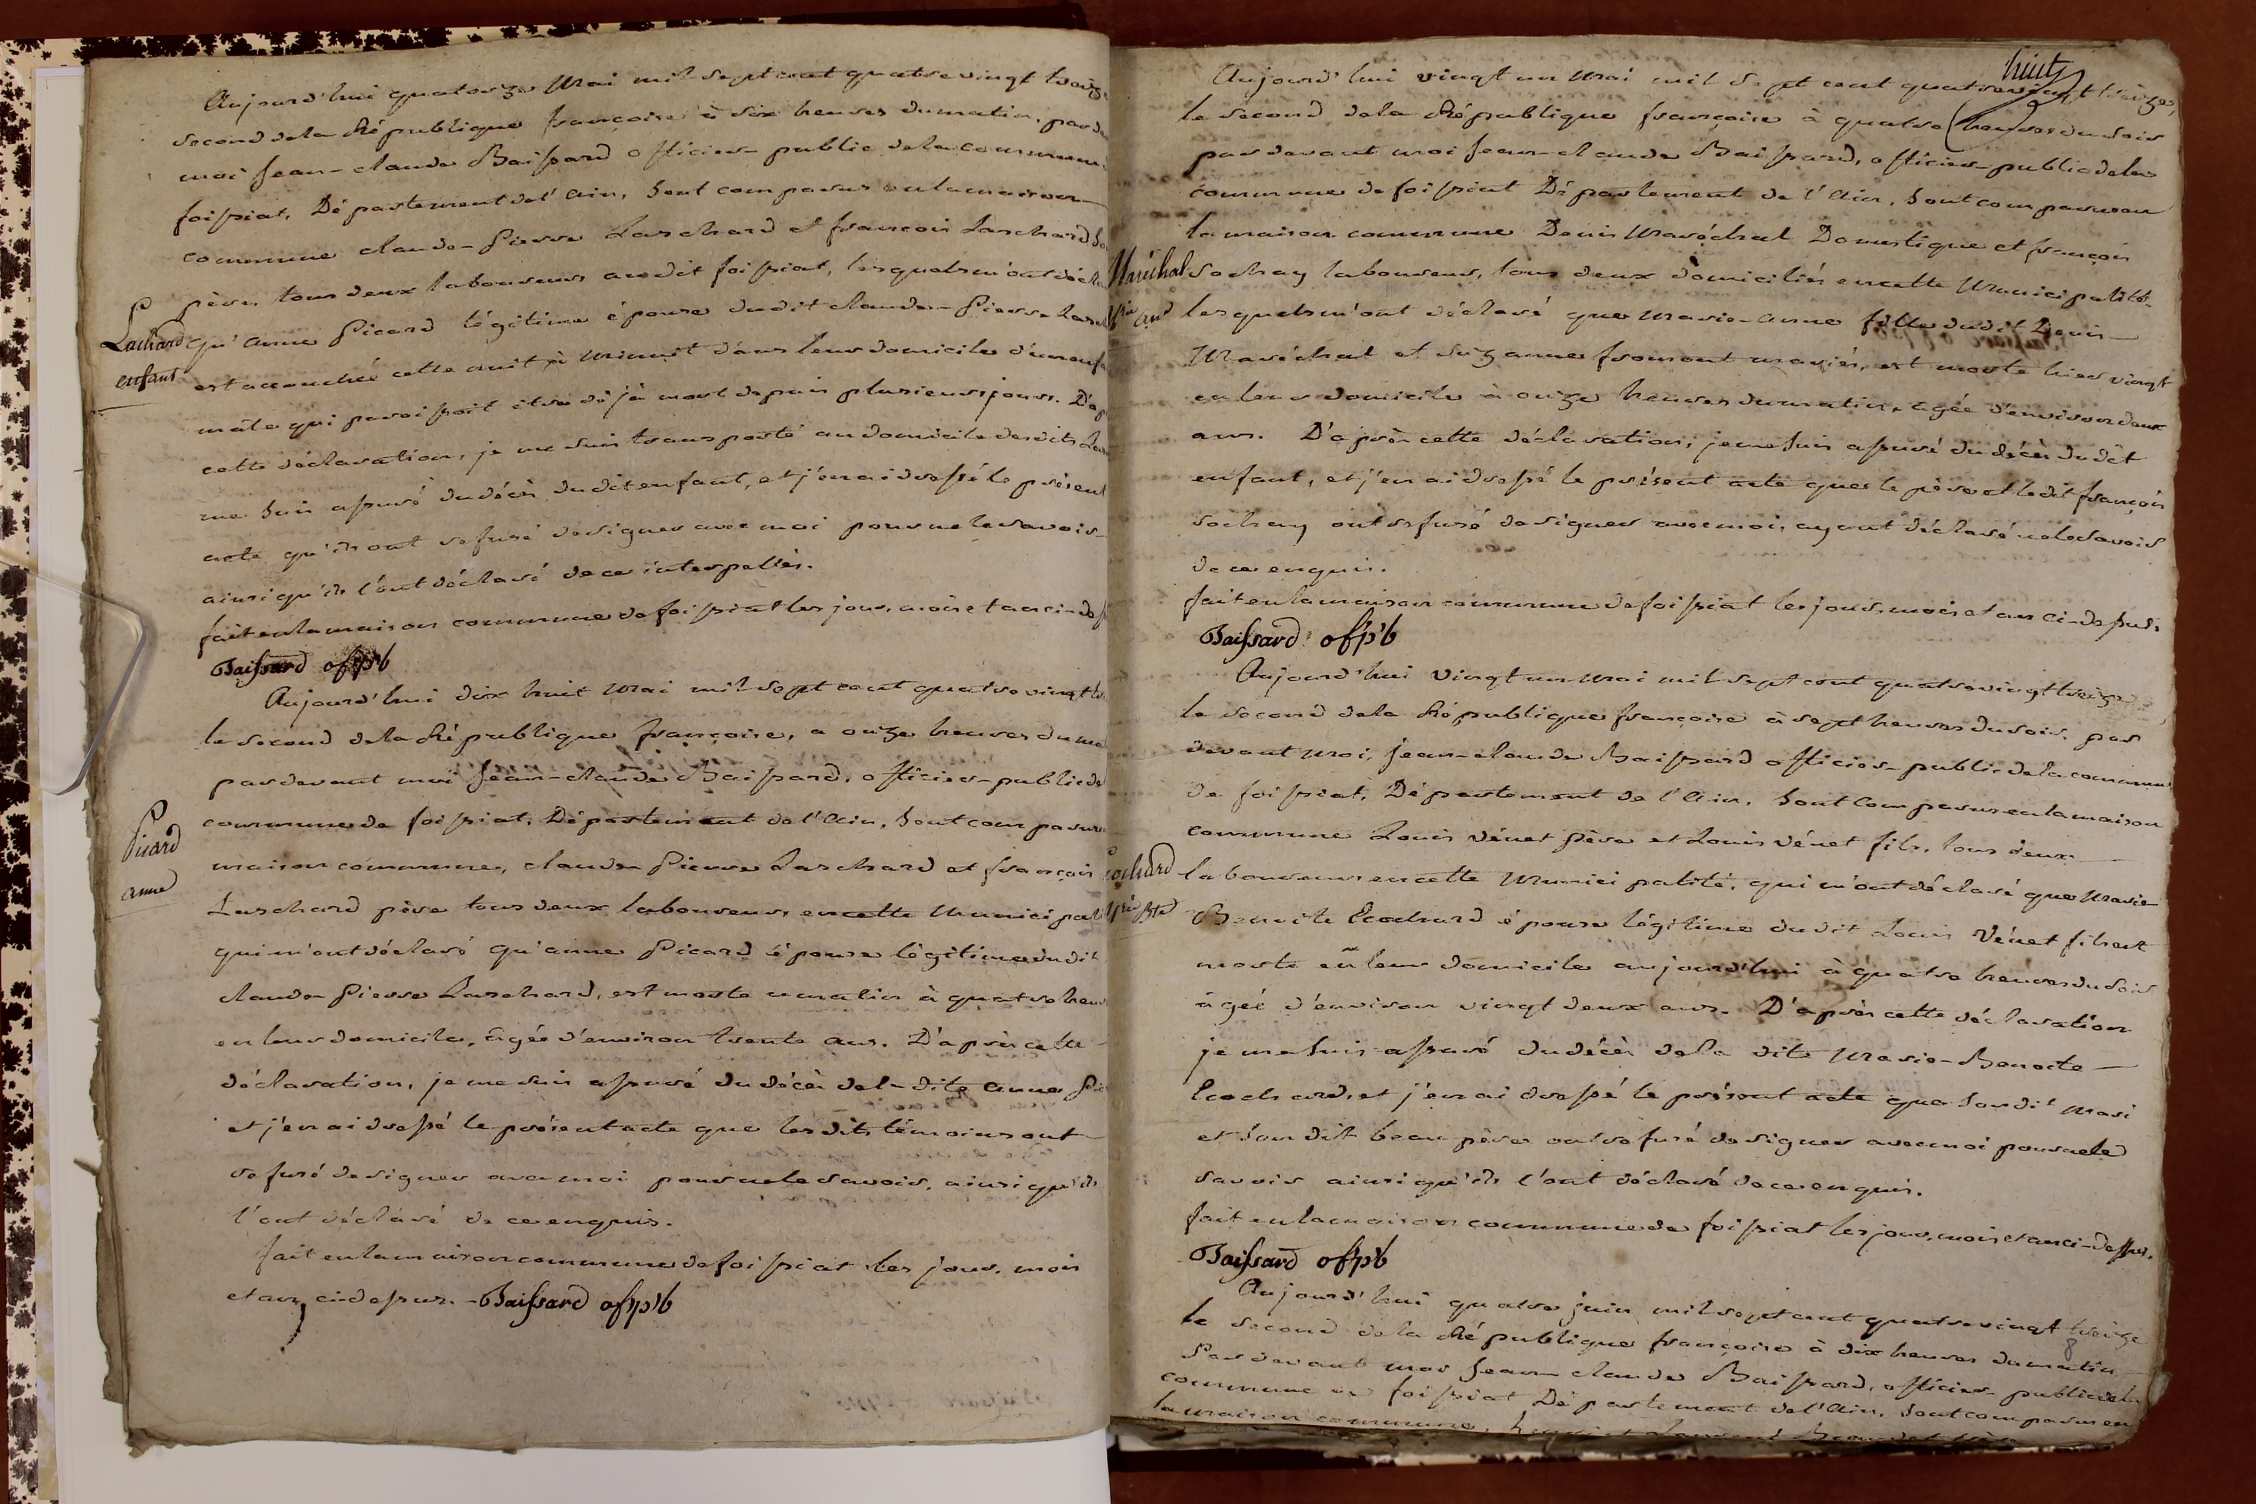 Aujourd'hui quatorze Mai mil sept cent quatre vingt treize
second dela République françoise à six heures du matin, par de
moi Jean-claude Baissard officier public dela commune
foissiat, Département del'Ain, sont comparus en la maison
commune claude-Pierre Laschard et françois Laschard So
père, tous deux laboureurs audit foissiat, lesquels m'ont décla
Lachard
enfant
qu'anne Picard légitime épouse dudit claude-Pierre Lasch
est accouchée cette nuit à minuit dans leur domicile d'un enfa
mâle qui paroissoit être déjà mort depuis plusieurs jours. D'ap
cette déclaration, je me suis transporté au domicile desdits Las
me suis assuré du décès dudit enfant, et j'en ai dressé le présent
acte qu'ils ont refusé de signer avec moi pour ne le savoir
ainsi qu'ils l'ont déclaré de ce interpellés.
fait en la maison commune de foissiat les jour, mois et an ci-dess
Baissard off. pb
Aujourd'hui dix huit Mai mil sept cent quatre vingt tre
le second dela République françoise, a onze heures du ma
pardevant moi Jean-claude Baissard, officier-public de
commune de foissiat, Département del'Ain, sont comparus
Picard
anne
maison commune, claude Pierre Laschard et françois
Laschard père tous deux laboureurs en cette Municipal
qui m'ont déclaré qu'anne Picard épouse légitime dudit
claude Pierre Laschard, est morte ce matin à quatre heu
en leur domicile, agée d'environ trente ans. D'après cette
déclaration, je me suis assuré du décès dela dite anne Pi
et j'en ai dressé le présent acte que lesdits témoins ont
refusé de signer avec moi pour ne le savoir, ainsi qu'ils
l'ont déclaré de ce enquis.
fait en la maison commune de foissiat les jour, mois
et an ci-dessus. Baissard off. pb
huit
Aujourd'hui vingt un Mai mil sept cent quatre vingt treize,
le second dela République françoise à quatre heures du soir
pardevant moi Jean-claude Baissard, officier-public dela
commune de foissiat Département de l'Ain, sont comparus en
la maison commune Denis Maréchal Domestique et françois
Maréchal
Sochay laboureur, tous deux domiciliés en cette Municipalité
lesquels m'ont déclaré que Marie-anne fille dudit Denis
Maréchal et Suzanne fromont mariés, est morte hier vingt
en leur domicile à onze heures du matin, agée d'environ deux
ans. D'après cette déclaration, je me suis assuré du décès dudit
enfant, et j'en ai dressé le présent acte que le père et ledit françois
sochay ont refusé de signer avec moi, ayant déclaré ne le savoir
de ce enquis.
fait en la maison commune de foissiat les jour, mois et an ci-dessus.
Baissard off. pb
Aujourd'hui Vingt un Mai mil sept cent quatre vingt treize
le second dela République françoise à sept heures du soir, par
devant moi, Jean-claude Baissard officier-public dela commune
de foissiat, Département de l'Ain, sont comparus en la maison
commune Louis Vénet père et Louis Vénet fils, tous deux
laboureurs en cette Municipalité, qui m'ont déclaré que Marie
Benoite Ecochard épouse légitime dudit Louis Vénet fils est
morte en leur domicile aujourd'hui à quatre heures du soir
âgée d'environ vingt deux ans. D'après cette déclaration
je me suis assuré du décès dela dite Marie-Benoite
Ecochard, et j'en ai dressé le présent acte que son dit Mari
et son dit beau père ont refusé de signer avec moi pour ne le
savoir ainsi qu'ils l'ont déclaré de ce enquis.
fait en la maison commune de foissiat les jour, mois et an ci-dessus.
Baissard off. pb
Aujourd'hui quatre juin mil sept cent quatre vingt treize
8
le second dela République françoise à dix heures du matin
Pardevant moi Jean-claude Baissard, officier public dela
commune de foissiat Département del'Ain, sont comparus en
la maison commune,